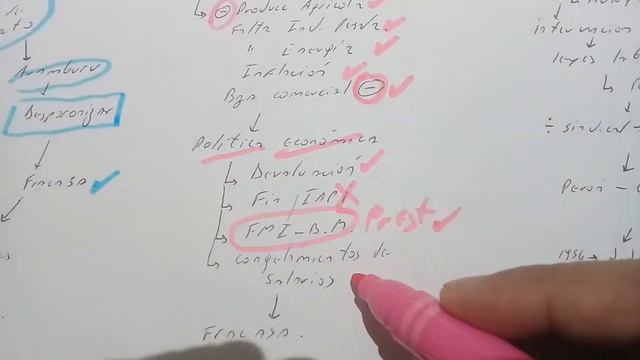 Aramburu
Desperonizar
Fracasa
⊖ Produce Agrícola
Falta Inv. Pesda.
" Energía
Inflación
Bza comercial ⊖
Política económica
Devaluación
Fin IAPI
FMI - B.M. Prest
congelamientos de
salarios
Fracasa.
intervencion
leyes
÷ sindical -
Perón -
1956 →